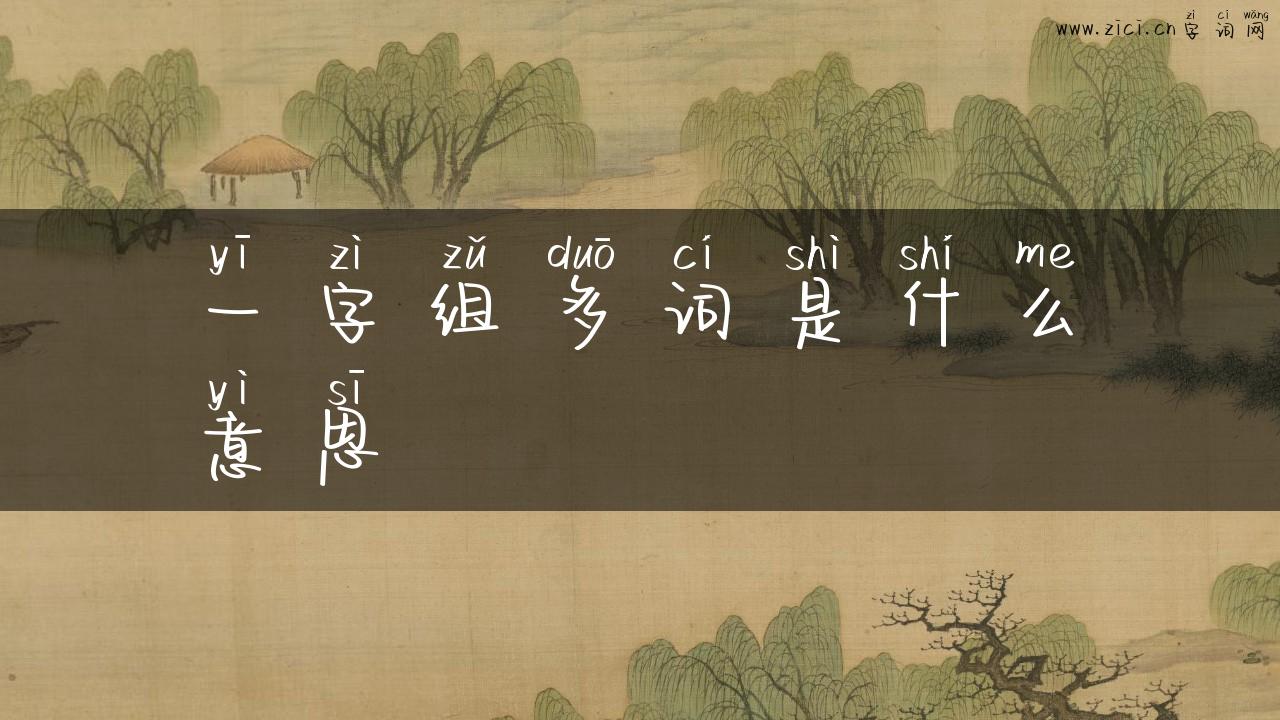 zì cí wǎng
www.zici.cn 字词网
yī zì zǔ duō cí shì shí me
一字组多词是什么
yì sī
意思